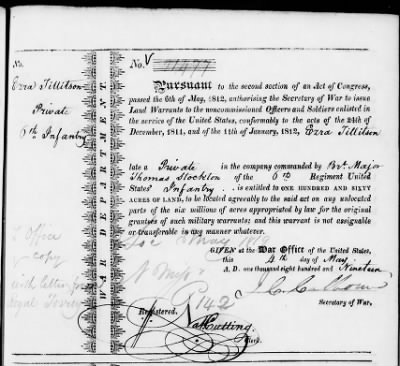 No.
Ezra Tillitson
Private
6th Infantry
WAR DEPARTMENT.
No. 11477
Pursuant to the second section of an Act of Congress,
passed the 6th of May, 1812, authorising the Secretary of War to issue
Land Warrants to the noncommissioned Officers and Soldiers enlisted in
the service of the United States, conformably to the acts of the 24th of
December, 1811, and of the 11th of January, 1812, Ezra Tillitson
late a Private in the company commanded by Brt. Major
Thomas Stockton of the 6th Regiment United
States' Infantry is entitled to ONE HUNDRED AND SIXTY
ACRES OF LAND, to be located agreeably to the said act on any unlocated
parts of the six millions of acres appropriated by law for the original
grantees of such military warrants; and this warrant is not assignable
or transferable in any manner whatever.
GIVEN at the War Office of the United States,
this 4th day of May
A. D. one thousand eight hundred and Nineteen
J. C. Calhoun
Secretary of War.
142
Registered.
Nat Cutting
Clerk.
Office
copy
with letter from